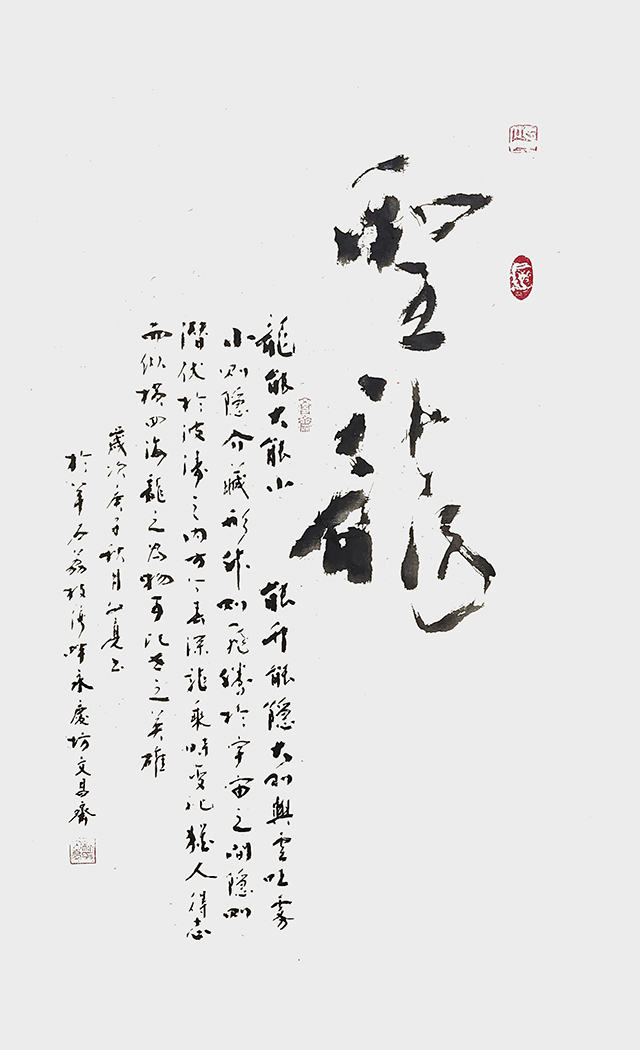 聖龍
龍能大能小能升能隱大則興雲吐霧
小則隱介藏形升則飛騰於宇宙之間隱則
潛伏於波濤之內方今春深龍乘時變化猶人得志
而縱橫四海龍之為物可比世之英雄
歲次庚子秋月書
於羊石荔枝灣畔永慶坊文昌齋